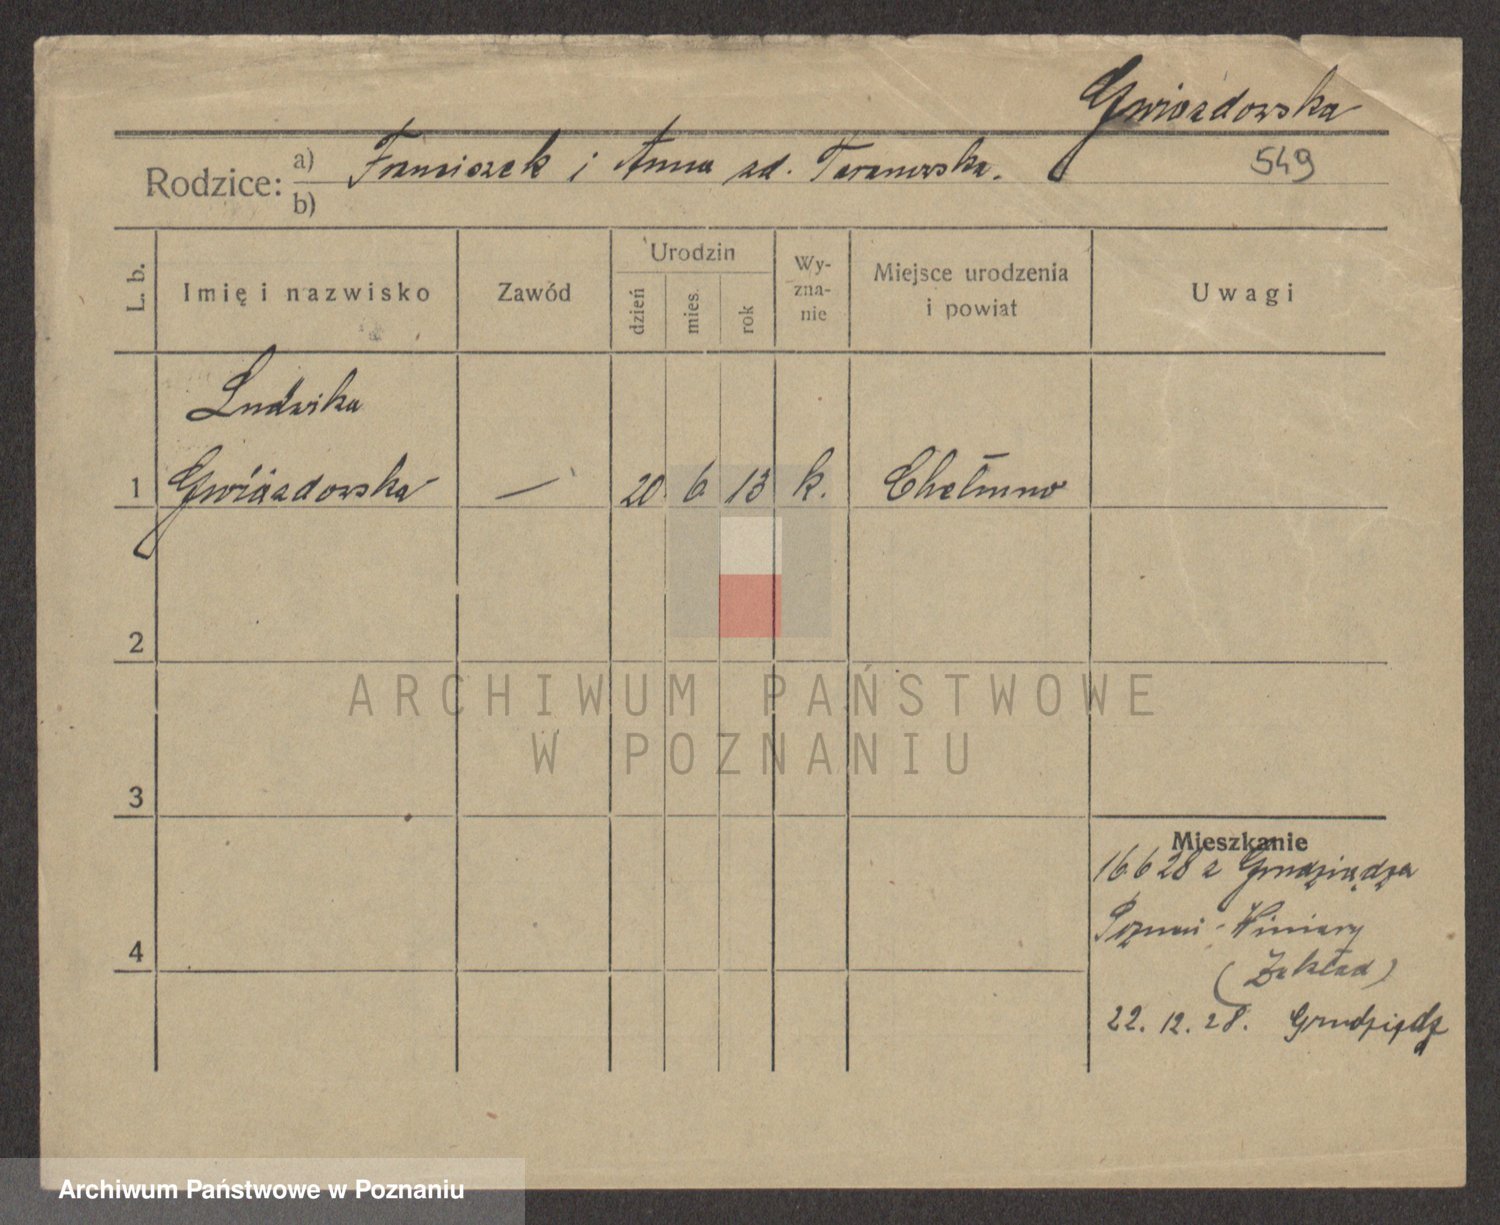 Gwiazdowska
549
Rodzice: a) Franciszek i Anna zd.
b)
L. b.
Imię i nazwisko
Zawód
Urodzin
dzień
mies.
rok
Wy-
zna-
nie
Miejsce urodzenia
i powiat
Uwagi
Ludwika
1 Gwiazdowska — 20 6 13 k. Chełmno
2
3
4
Mieszkanie
16 6 28 z Grudziądza
Poznań - Winiary
(Zakład)
22. 12. 28. Grudziądz
ARCHIWUM PAŃSTWOWE
W POZNANIU
Archiwum Państwowe w Poznaniu